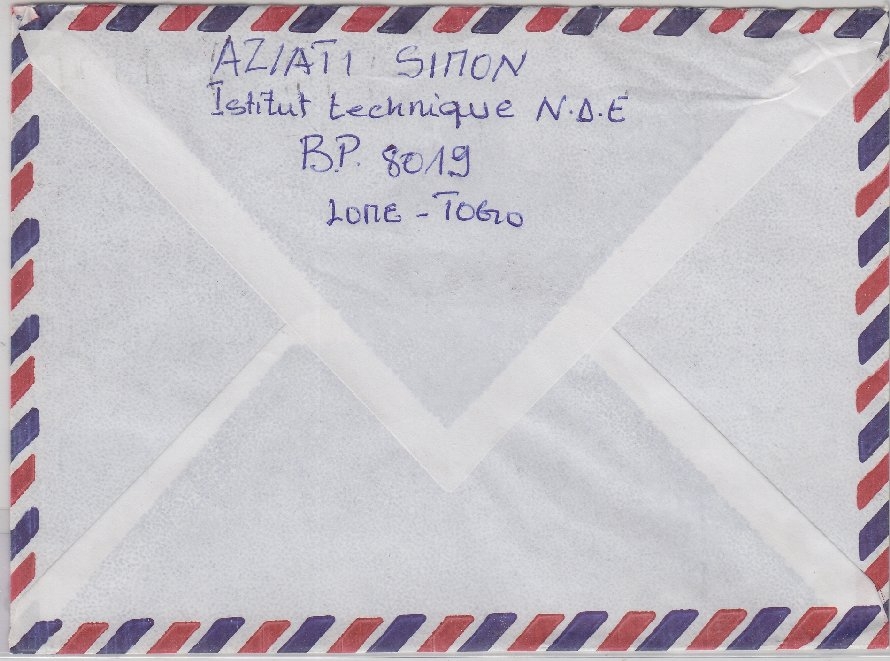 AZIATI SIMON
Istitut technique N.D.E
B.P. 8019
LOME - TOGO